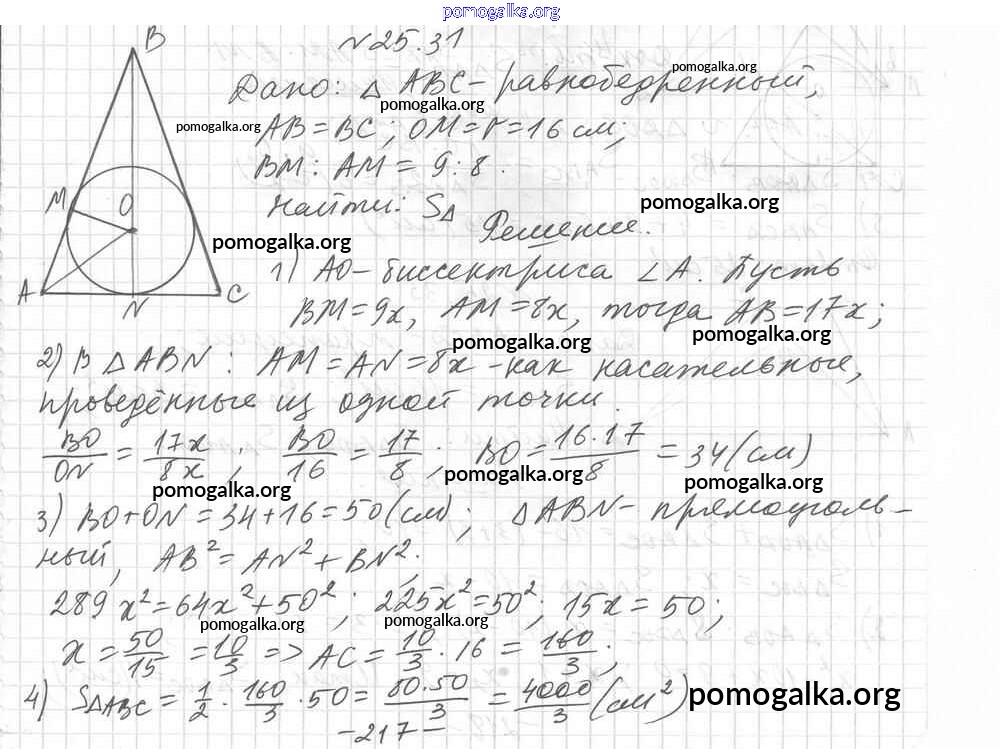 pomogalka.org
N 25.31
B
Дано: △ ABC - равнобедренный,
pomogalka.org
pomogalka.org
pomogalka.org AB = BC; OM = r = 16 см;
BM : AM = 9 : 8.
M O
Найти: S△
pomogalka.org
Решение.
pomogalka.org
1) AO - биссектриса ∠A. Пусть
A N C
BM = 9x, AM = 8x, тогда AB = 17x;
pomogalka.org pomogalka.org
2) В △ ABN : AM = AN = 8x - как касательные,
проведённые из одной точки.
BO/ON = 17x/8x ; BO/16 = 17/8 ; BO = 16·17/8 = 34 (см)
pomogalka.org pomogalka.org pomogalka.org
3) BO + ON = 34 + 16 = 50 (см); △ ABN - прямоуголь-
ный, AB² = AN² + BN².
289 x² = 64x² + 50²; 225x² = 50²; 15x = 50;
pomogalka.org pomogalka.org
x = 50/15 = 10/3 => AC = 10/3 · 16 = 160/3 ;
4) S△ABC = 1/2 · 160/3 · 50 = 80·50/3 = 4000/3 (см²) pomogalka.org
-217-